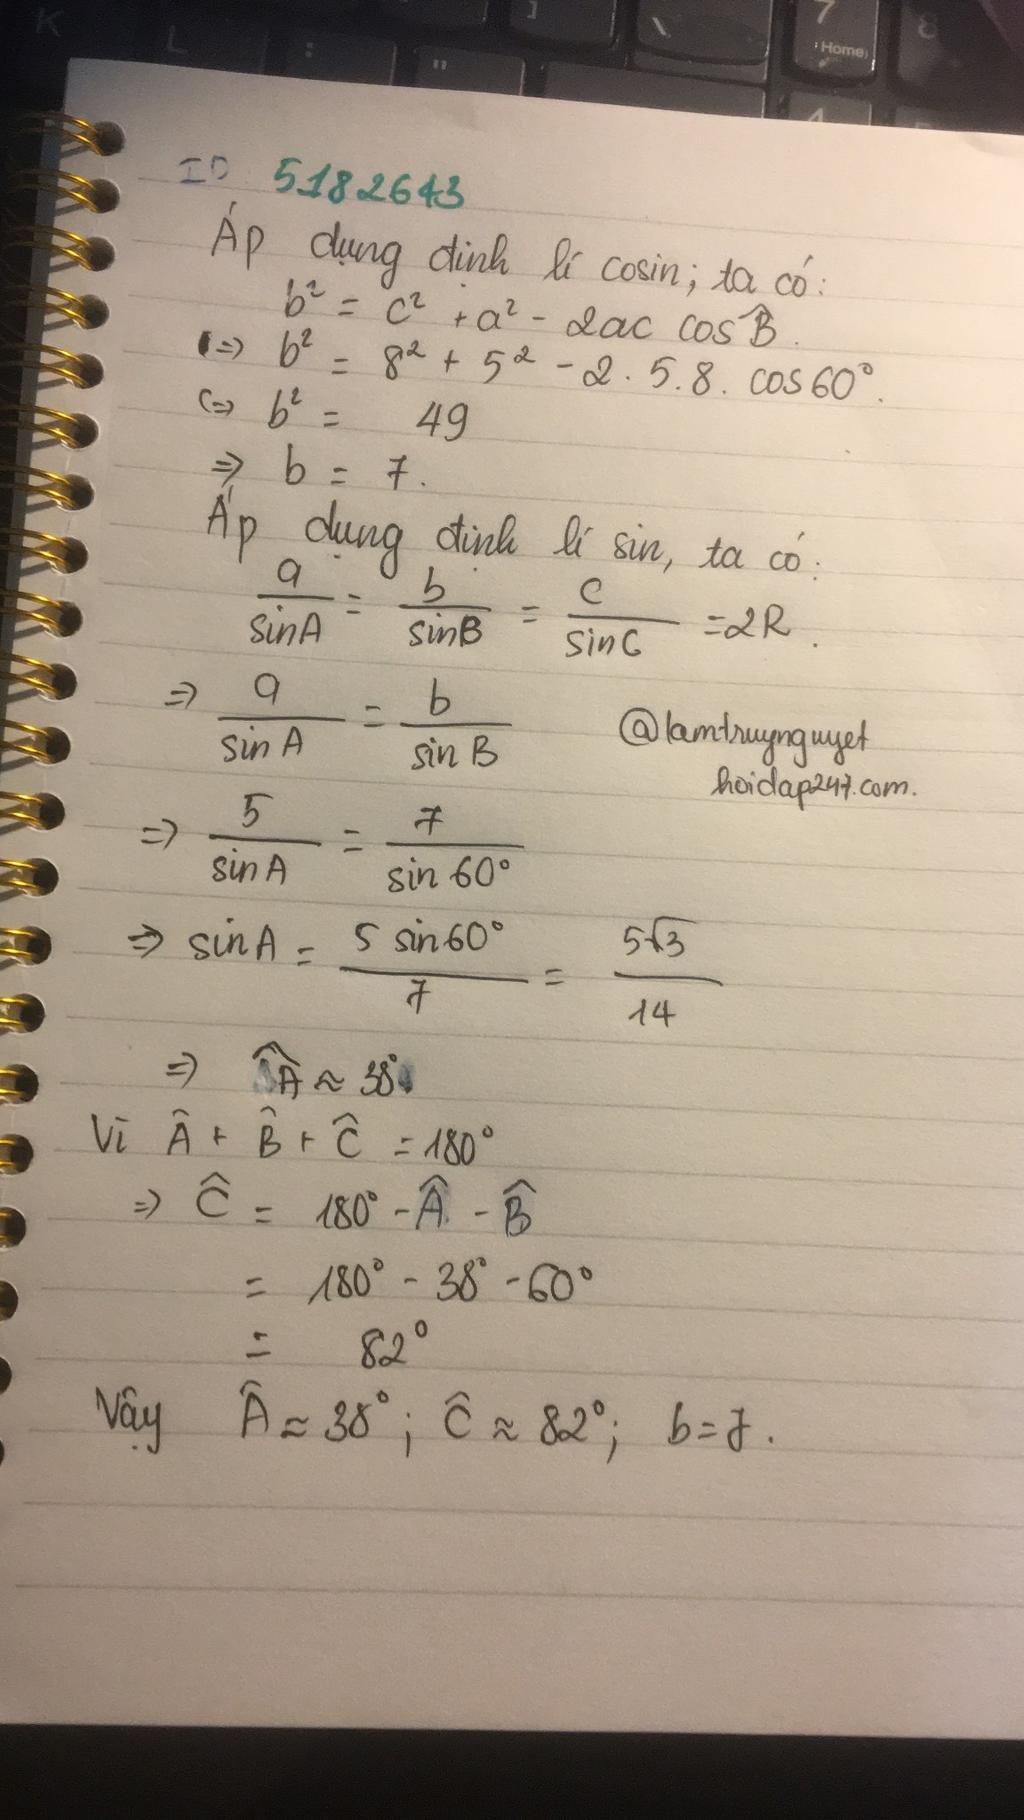 ID 5182643
Áp dụng định lí cosin; ta có:
b² = c² + a² - 2ac cos B̂.
(=> b² = 8² + 5² - 2.5.8. cos60°.
(=> b² = 49
=> b = 7.
Áp dụng định lí sin, ta có:
a/sinA = b/sinB = c/sinC = 2R.
=> a/sinA = b/sinB
@lamtruynguyet
hoidap247.com.
=> 5/sinA = 7/sin60°
=> sinA = 5 sin60°/7 = 5√3/14
=> Â ≈ 38°
Vì Â + B̂ + Ĉ = 180°
=> Ĉ = 180° - Â - B̂
= 180° - 38° - 60°
= 82°
Vậy Â ≈ 38°; Ĉ ≈ 82°; b = 7.
K
L
:
"
]
\
7
Home
8
4